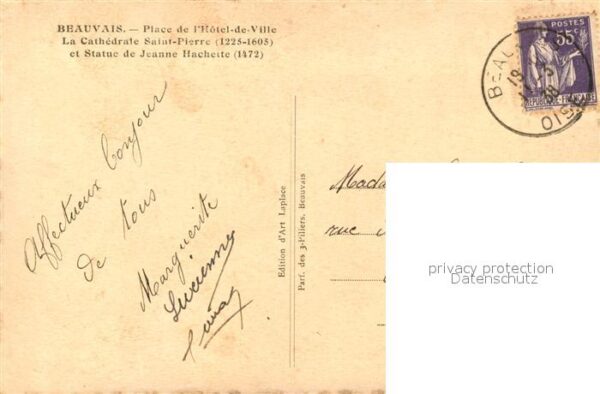 BEAUVAIS. — Place de l'Hôtel-de-Ville
La Cathédrale Saint-Pierre (1225-1605)
et Statue de Jeanne Hachette (1472)
POSTES
55c
REPUBLIQUE FRANÇAISE
BEAU
OISE
38
Affectueux bonjour
de tous
Marguerite
Lucienne
Edition d'Art Laplace
Parf. des 3-Piliers, Beauvais
Mada
rue
privacy protection
Datenschutz